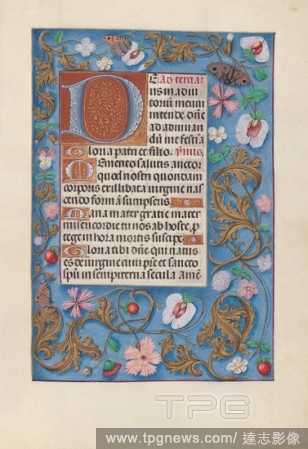 D E Ad tertiã
us in adiu
toriũ meum
intende dñe
ad adiuuan
dũ me festĩa
Gloria patri et filio. Ymnus
Memento salutis auctor
quod nostri quondam
corporis ex illibata uirgine nas
cendo formã sumpseris.
Maria mater gratie mater
misericordie tu nos ab hoste, p
tege in hora mortis suscipe.
Gloria tibi dñe qui natus
es de uirgine cum pr̃e et sancto
spũ in sempiterna secula amẽ
TPG
www.tpgnews.com/ 達志影像